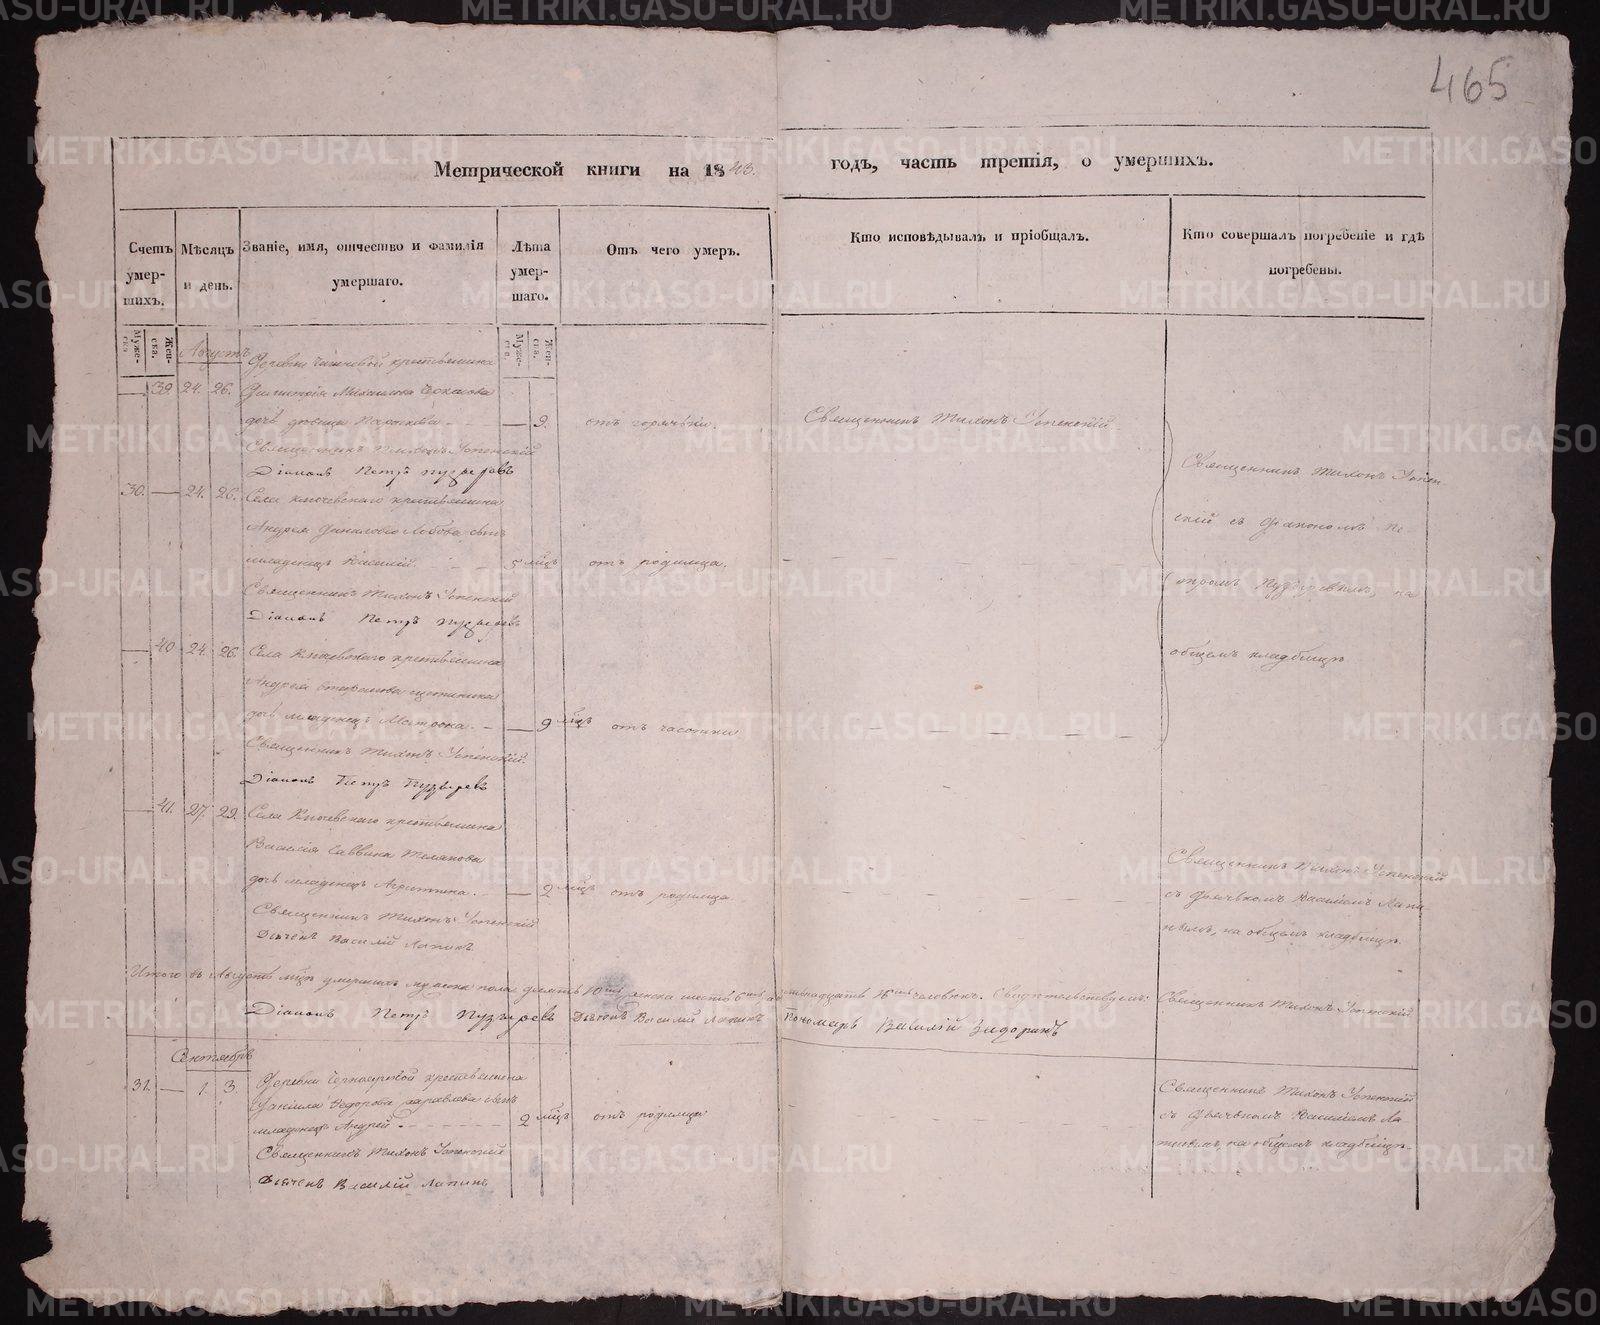 465
Метрической книги на 1843. годъ, часть третія, о умершихъ.
Счетъ умер-шихъ.
Мѣсяцъ и день.
Званіе, имя, отчество и фамилія умершаго.
Лѣта умер-шаго.
Отъ чего умеръ.
Кто исповѣдывалъ и пріобщалъ.
Кто совершалъ погребеніе и гдѣ погребены.
Муже-ска
Жен-ска.
Муже-ска.
Жен-ска.
Августъ
Деревни крестьянина
39. 24. 26. Михайлова
дочь девица 9. отъ горячки. Священникъ Тихонъ Успенскій
Священникъ Тихонъ Успенскій
Діаконъ Петръ Пузыревъ
30. 24. 26. Села Ключевскаго крестьянина
Андрея Лобова сынъ
младенецъ Василій. 5 мѣцъ отъ родимца.
Священникъ Тихонъ Успенскій
Діаконъ Петръ Пузыревъ
Священникъ Тихонъ Успен-
скій съ Діакономъ Пе-
тромъ Пузыревымъ, на
общемъ кладбищѣ
40 24. 26. Села Ключевскаго крестьянина
Андрея
дочь младенецъ Матрона. 9 мѣцъ отъ чахотки
Священникъ Тихонъ Успенскій.
Діаконъ Петръ Пузыревъ
41. 27. 29. Села Ключевскаго крестьянина
Василія Саввина
дочь младенецъ Агриппина. 2 мѣцъ отъ родимца
Священникъ Тихонъ Успенскій
Дьячекъ Василій Лапинъ.
Священникъ Тихонъ Успенскій
съ Дьячкомъ Василіемъ Лапи-
нымъ, на общемъ кладбищѣ.
Итого въ Августѣ мѣцѣ умершихъ мужеска пола десять 10ть женска шесть 6ть а шестнадцать 16ть человѣкъ. Свидѣтельствуемъ: Священникъ Тихонъ Успенскій
Діаконъ Петръ Пузыревъ Дьячекъ Василій Лапинъ Пономарь Василій
Сентябрь
31. 1. 3. Деревни крестьянина
Даніила Федорова сынъ
младенецъ Андрей 2 мѣцъ отъ родимца
Священникъ Тихонъ Успенскій
Дьячекъ Василій Лапинъ
Священникъ Тихонъ Успенскій
съ Дьячкомъ Василіемъ Ла-
пинымъ на общемъ кладбищѣ.
METRIKI.GASO-URAL.RU